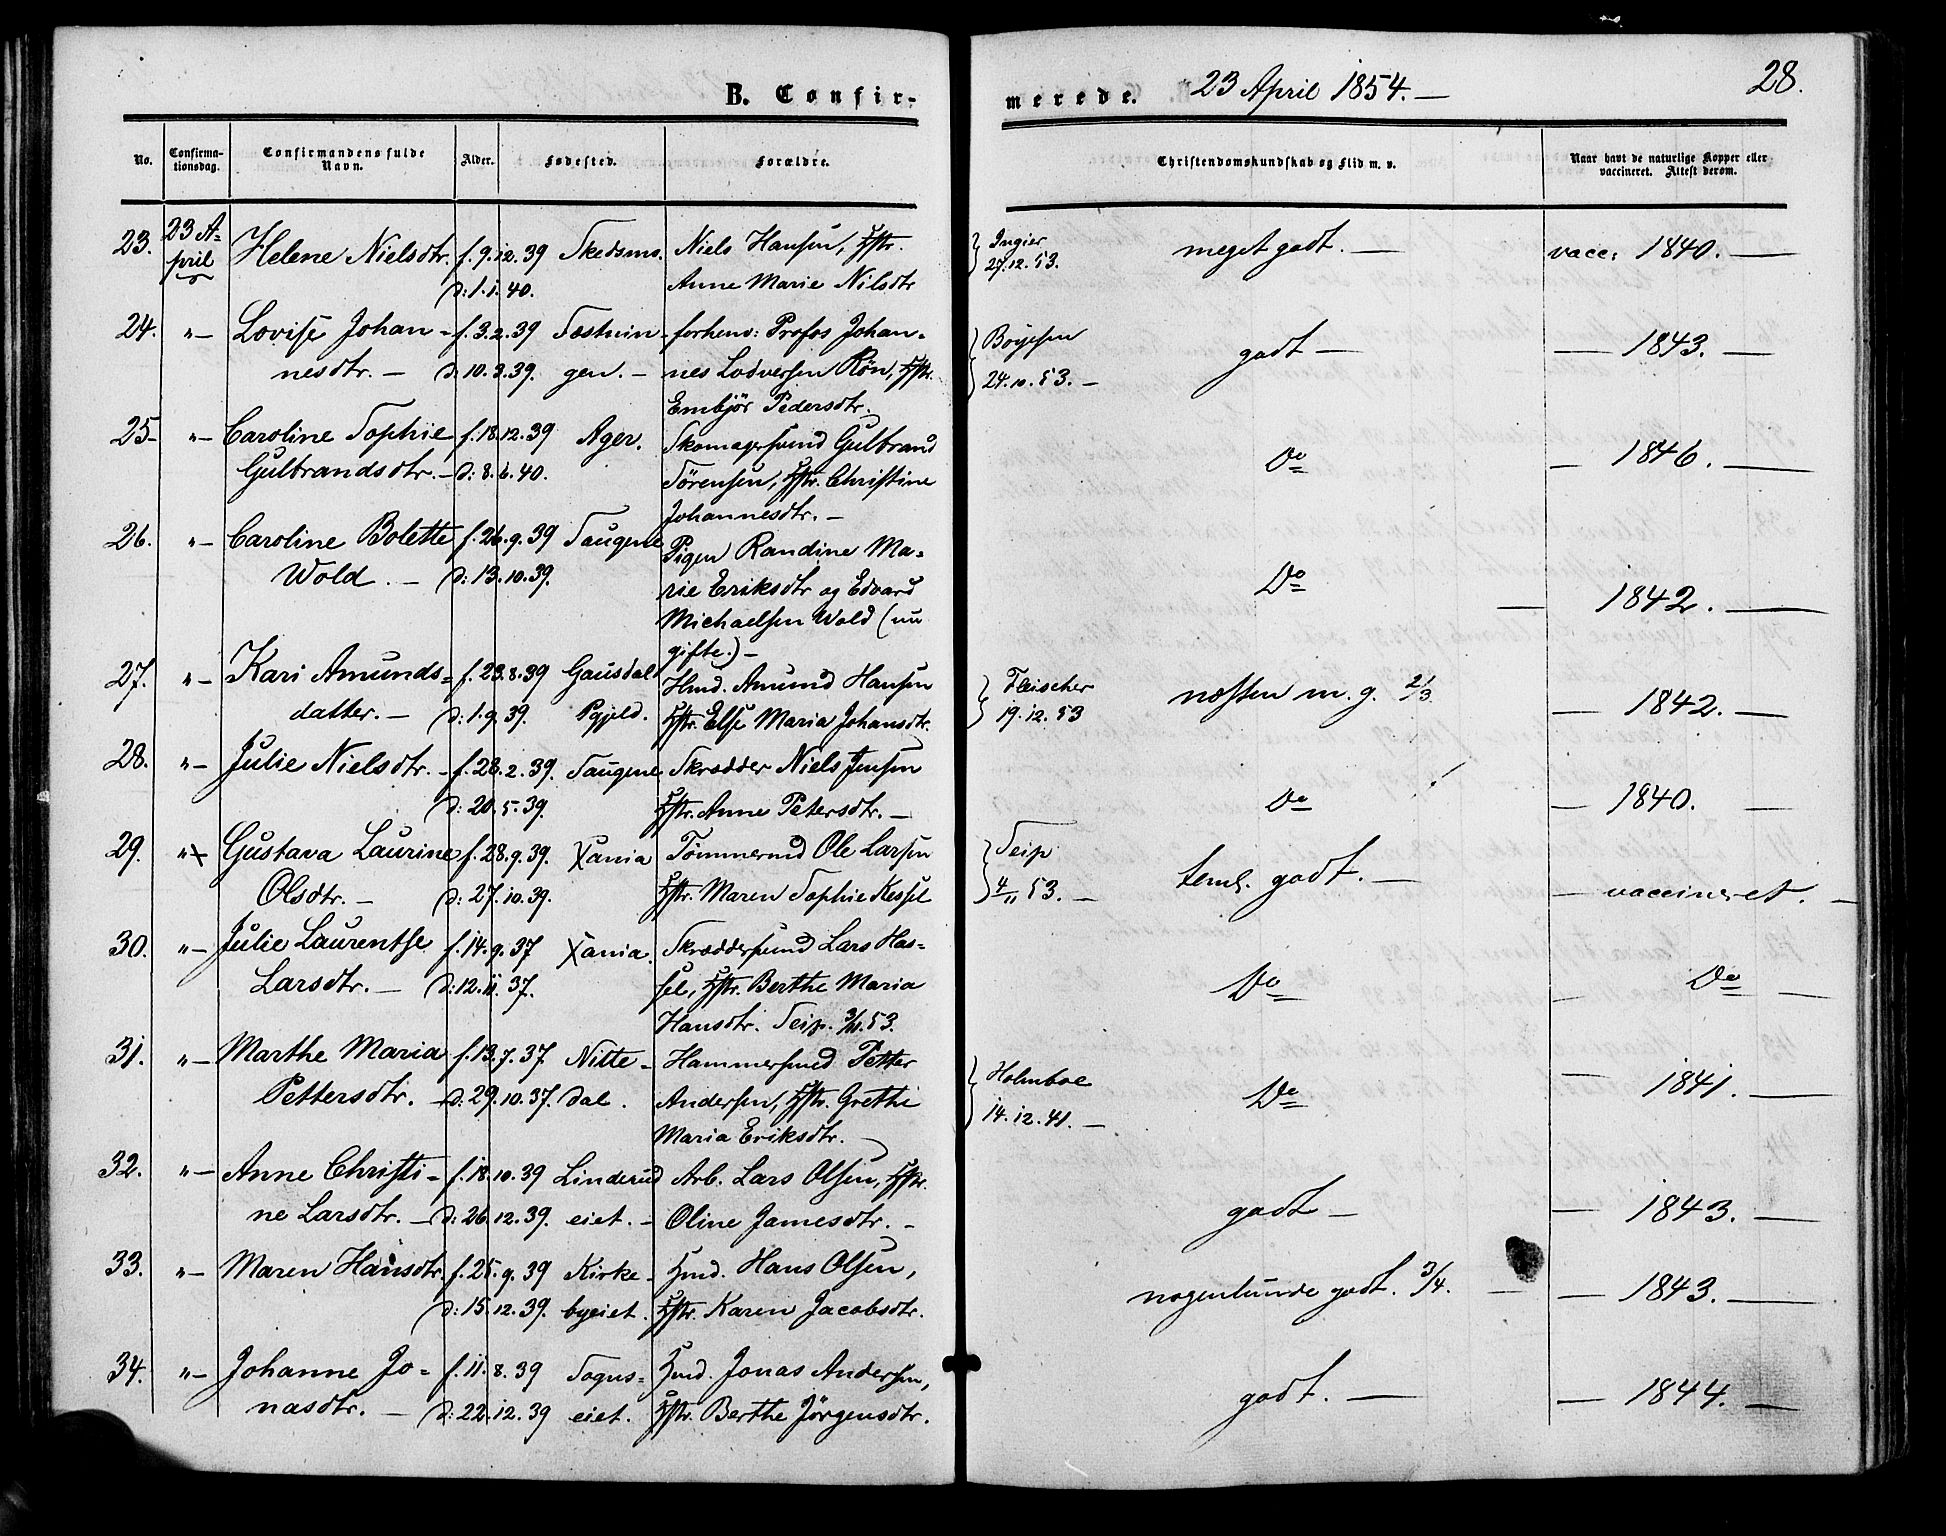 B. Confirmerede. 23 April 1854. — 28.
No. Confirmationsdag. Confirmandens fulde Navn. Alder. Fødested. Forældre. Christendomskundskab og Flid m. v. Naar havt de naturlige Kopper eller vaccineret. Attest derom.
23. 23 A= Helene Nielsdtr. f. 9.12.39 Skedsmo. Niels Hansen, Hstr. Ingier meget godt. — vacc: 1840. —
pril d: 1.1.40. Anne Marie Nilsdtr 27.12.53.
24. "— Lovise Johan= f. 3.2.39 Fæstnin= forhenv: Profos Johan= Boyesen godt — — 1843. —
nesdtr. — d: 10.3.39. gen. — nes Lodversen Rön, Hstr. 24.10.53. —
Embjör Pedersdtr.
25— "— Caroline Sophie f. 18.12.39 Ager. Skomagersvend Gulbrand Do — 1846. —
Gulbrandsdtr. — d: 8.6.40. Sörensen, Hstr. Christine
Johannesdtr. —
26. "— Caroline Bolette f. 26.9.39 Saugene Pigen Randine Ma= Do — 1842. —
Wold. — d: 13.10.39. rie Eriksdtr og Edvard
Michaelsen Wold (nu
gifte.) —
27. "— Kari Amunds= f. 23.8.39 Gausdals Hmd. Amund Hansen Fleischer næsten m. g. 2/3. — 1842. —
datter. — d: 1.9.39. Pgjeld. Hstr. Else Maria Johansdtr. 19.12.53
28. "— Julie Nielsdtr. — f. 28.2.39. Saugene Skrædder Niels Jensen Do — 1840. —
d: 20.5.39. Hstr. Anne Petersdtr. —
29. "— Gustava Laurine f. 28.9.39. Xania Tömmermd Ole Larsen Seip teml. godt. — — vaccineret. —
Olsdtr. — d: 27.10.39. Hstr. Maren Sophie Kessel 4/11 53. —
30. "— Julie Laurentse f. 14.9.37 Xania. Skræddersvend Lars Has= Do — Do —
Larsdtr. — d: 12.11.37. sel, Hstr. Berthe Maria
Hansdtr. Seip. 3/11.53.
31. "— Marthe Maria f. 13.7.37 Nitte= Hammersmed Petter Holmboe Do — 1841. —
Pettersdtr. — d: 29.10.37. dal. Andersen, Hstr. Grethe 14.12.41. —
Maria Eriksdtr.
32. "— Anne Christi= f. 18.10.39 Linderud Arb. Lars Olsen, Hstr. godt — — 1843. —
ne Larsdtr. — d: 26.12.39. eiet. — Oline Jamesdtr. —
33. "— Maren Hansdtr. f. 25.9.39 Kirke= Hmd. Hans Olsen, nogenlunde godt. 3/4. — — 1843. —
d: 15.12.39. byeiet. Hstr. Karen Jacobsdtr.
34. "— Johanne Jo= f. 11.8.39 Sogns= Hmd. Jonas Andersen, godt. — — 1844. —
nasdtr. — d: 22.12.39 eiet. Hstr. Berthe Jörgensdtr.